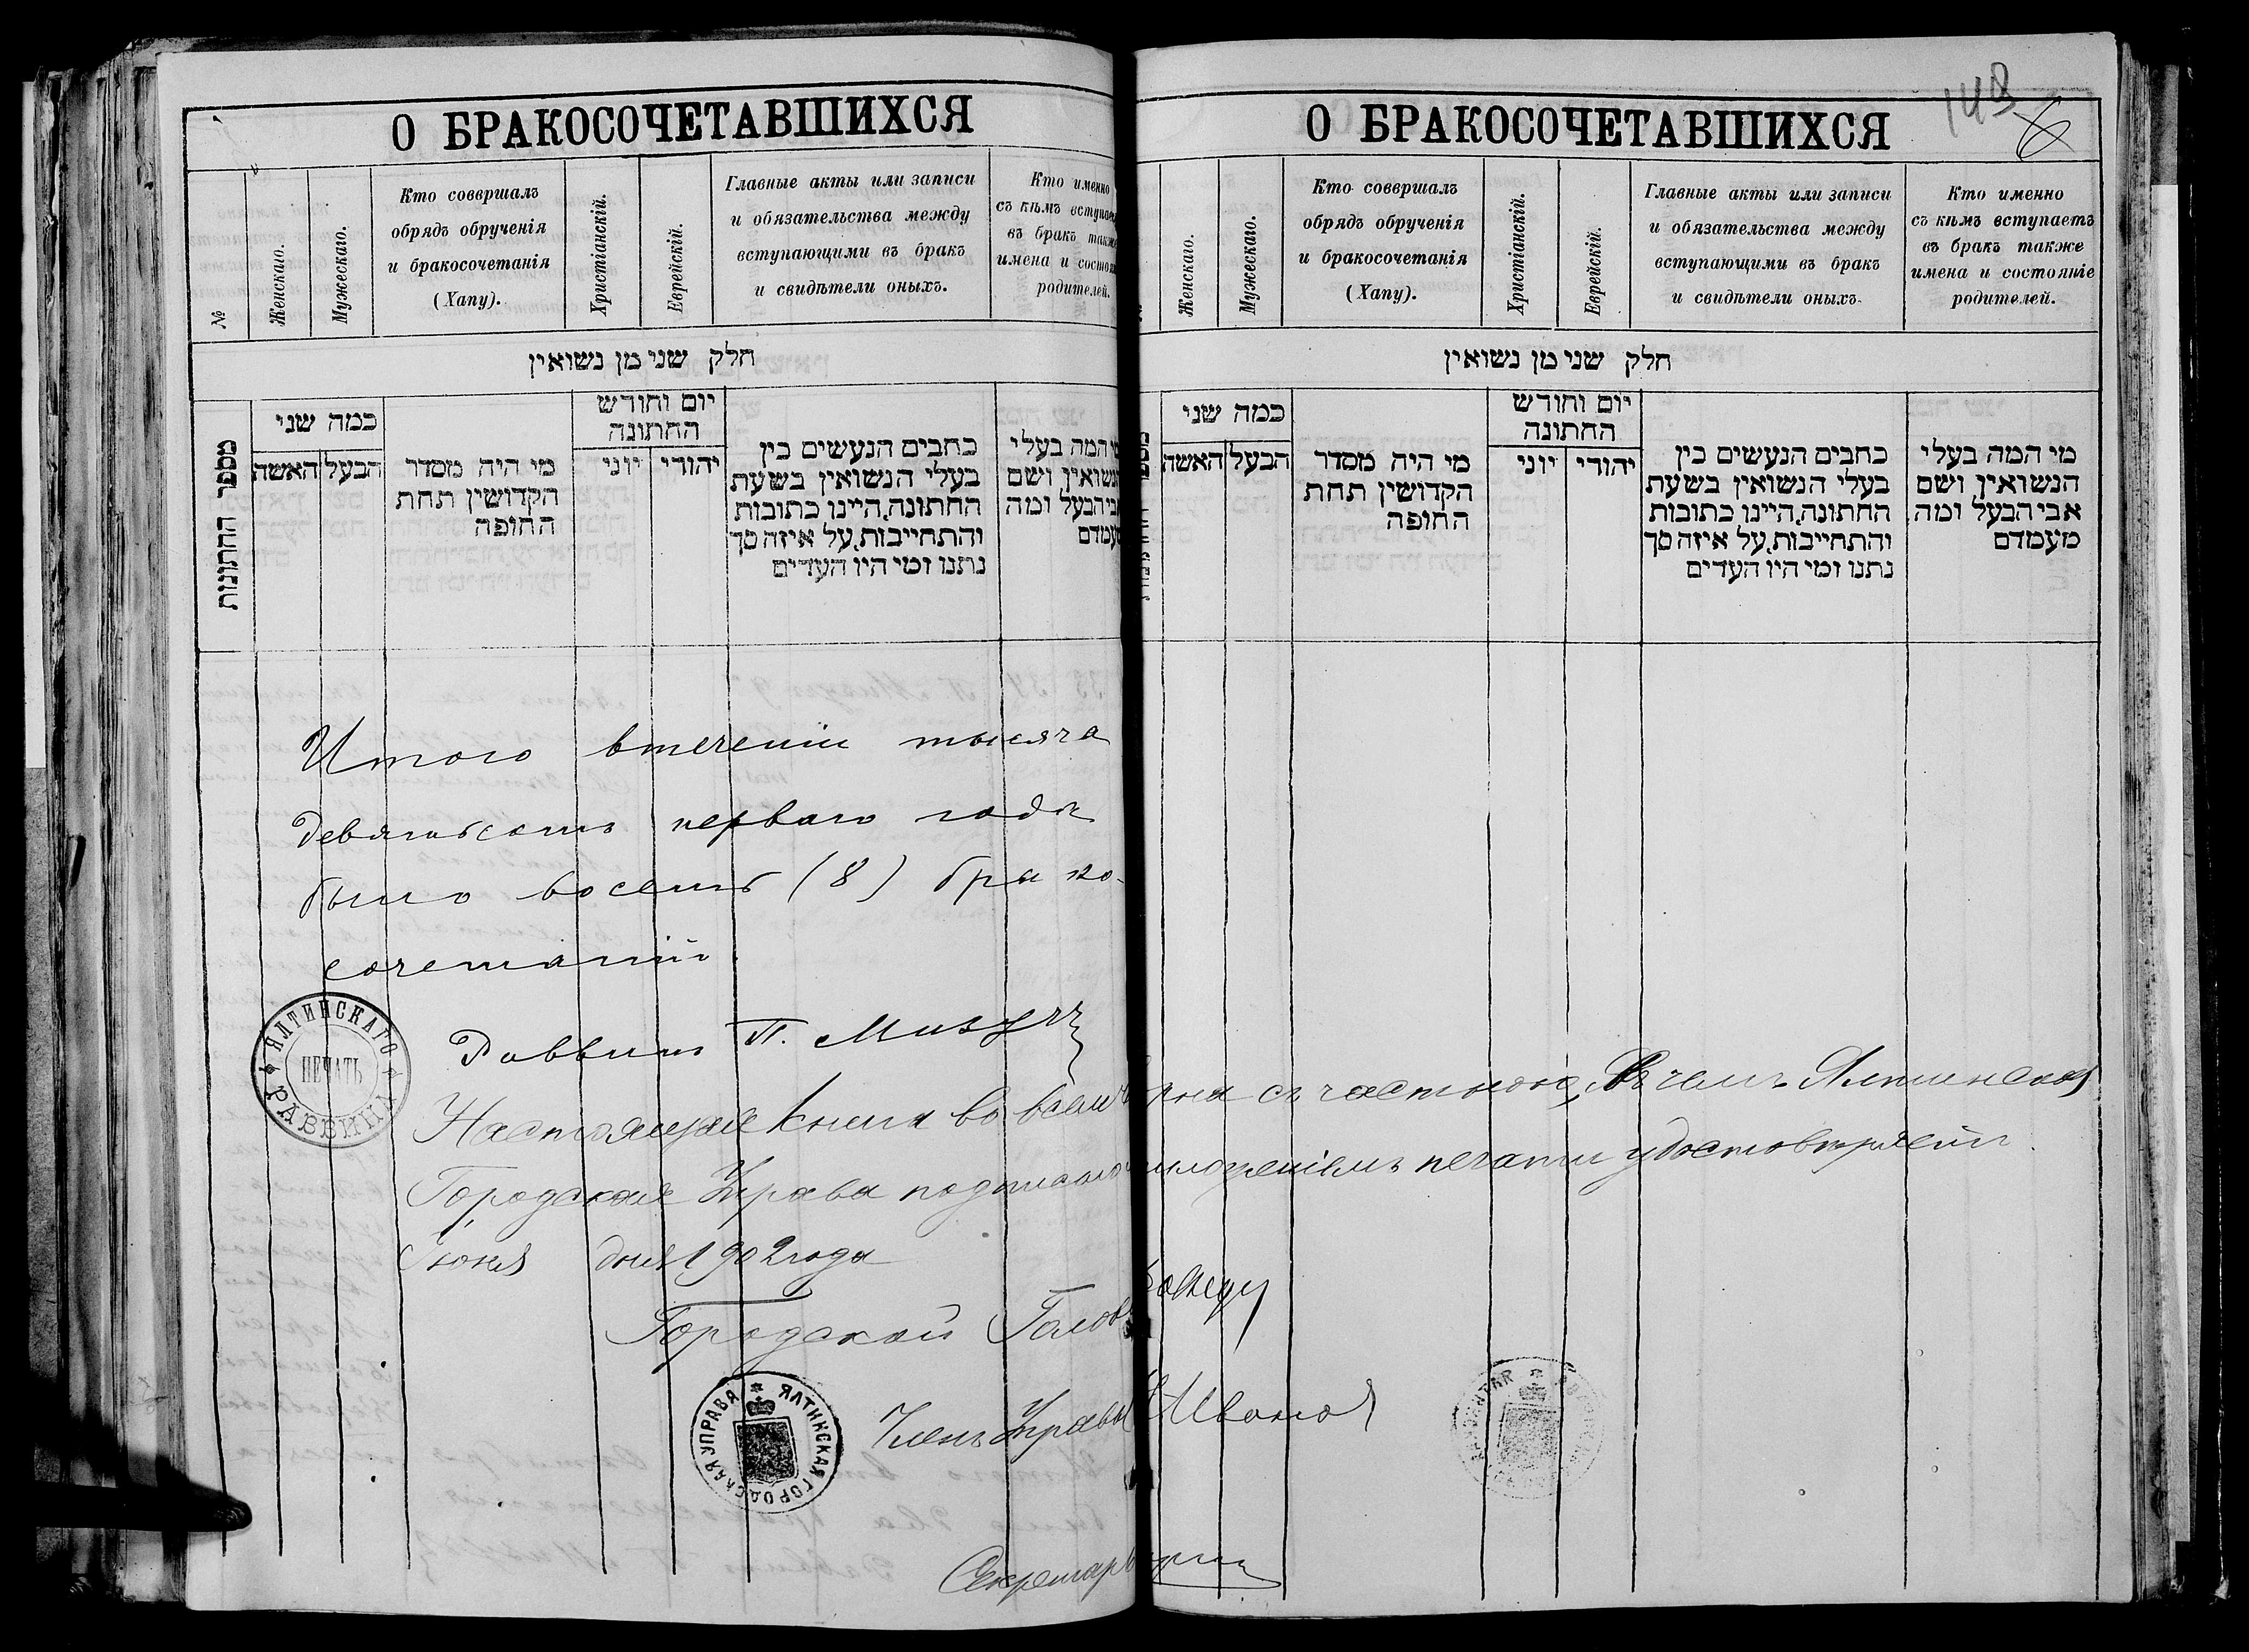 О БРАКОСОЧЕТАВШИХСЯ
№
Женскаго.
Мужескаго.
Кто соввршалъ
обрядъ обрученія
и бракосочетанія
(Хапу).
Христіанскій.
Еврейскій.
Главные акты или записи
и обязательства между
вступающими въ бракъ
и свидѣтели оныхъ.
Кто именно
съ кѣмъ вступае
въ бракъ такж
имена и состоя
родителей.
חלק שני מן נשואין
מספר החתונות
כמה שני
האשה
הבעל
מי היה מסדר
הקדושין תחת
החופה
יום וחודש
החתונה
יוני
יהודי
כתבים הנעשים בין
בעלי הנשואין בשעת
החתונה, היינו כתובות
והתחייבות, על איזה סך
נתנו ומי היו העדים
המה בעלי
ושם
הבעל ומה
Итого втеченіи тысяча
девятьсотъ перваго года
было восемь (8) брако-
сочетаній.
Раввинъ П.
ЯЛТИНСКАГО РАВВИНА
ПЕЧАТЬ
Настоящая книга во всемъ
Городская Управа
Іюня дня 1902 года
Городской Голова
ЯЛТИНСКАЯ ГОРОДСКАЯ УПРАВА
Членъ Управы
Секретарь
О БРАКОСОЧЕТАВШИХСЯ
143
6
Женскаго.
Мужескаго.
Кто соввршалъ
обрядъ обрученія
и бракосочетанія
(Хапу).
Христіанскій.
Еврейскій.
Главные акты или записи
и обязательства между
вступающими въ бракъ
и свидѣтели оныхъ.
Кто именно
съ кѣмъ вступаетъ
въ бракъ также
имена и состояніе
родителей.
חלק שני מן נשואין
כמה שני
האשה
הבעל
מי היה מסדר
הקדושין תחת
החופה
יום וחודש
החתונה
יוני
יהודי
כתבים הנעשים בין
בעלי הנשואין בשעת
החתונה, היינו כתובות
והתחייבות, על איזה סך
נתנו ומי היו העדים
מי המה בעלי
הנשואין ושם
אבי הבעל ומה
מעמדם
съ частною, въ чемъ Ялтинская
печати удостовѣряетъ.